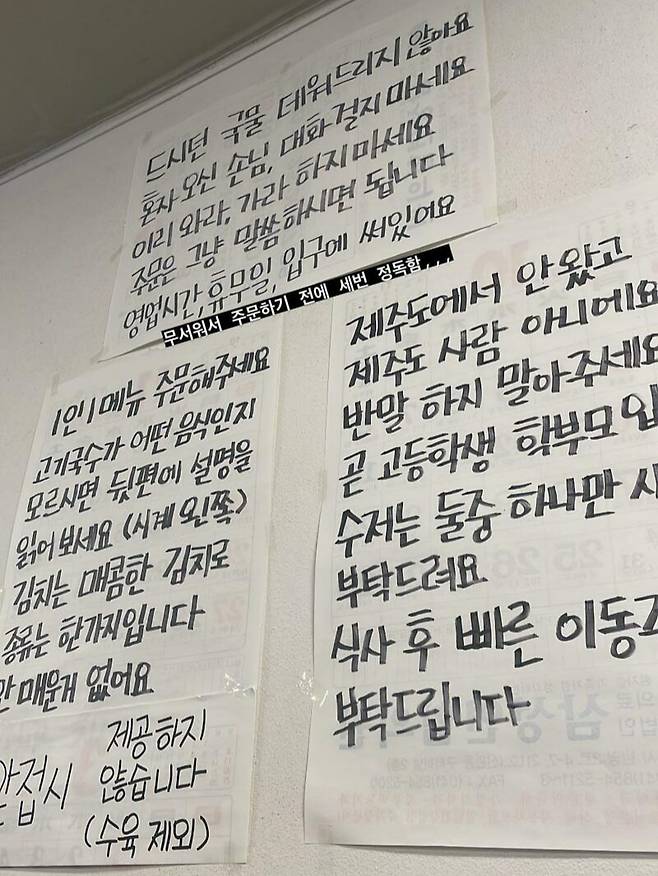 드시던 국물 데워드리지 않아요
혼자 오신 손님, 대화 걸지 마세요
이리 와라, 가라 하지마세요
주문은 그냥 말씀하시면 됩니다
영업시간, 휴무일, 입구에 써있어요
무서워서 주문하기 전에 세번 정독함,,,
1인 1메뉴 주문해주세요
고기국수가 어떤 음식인지
모르시면 뒷편에 설명을
읽어보세요 (시계 왼쪽)
김치는 매콤한 김치로
종류는 한가지입니다
안 매운게 없어요
접시 제공하지
않습니다
(수육 제외)
제주도에서 안 왔고
제주도 사람 아니에요
반말 하지 말아주세요
곧 고등학생 학부모
수저는 둘중 하나만
부탁드려요
식사 후 빠른
부탁드립니다